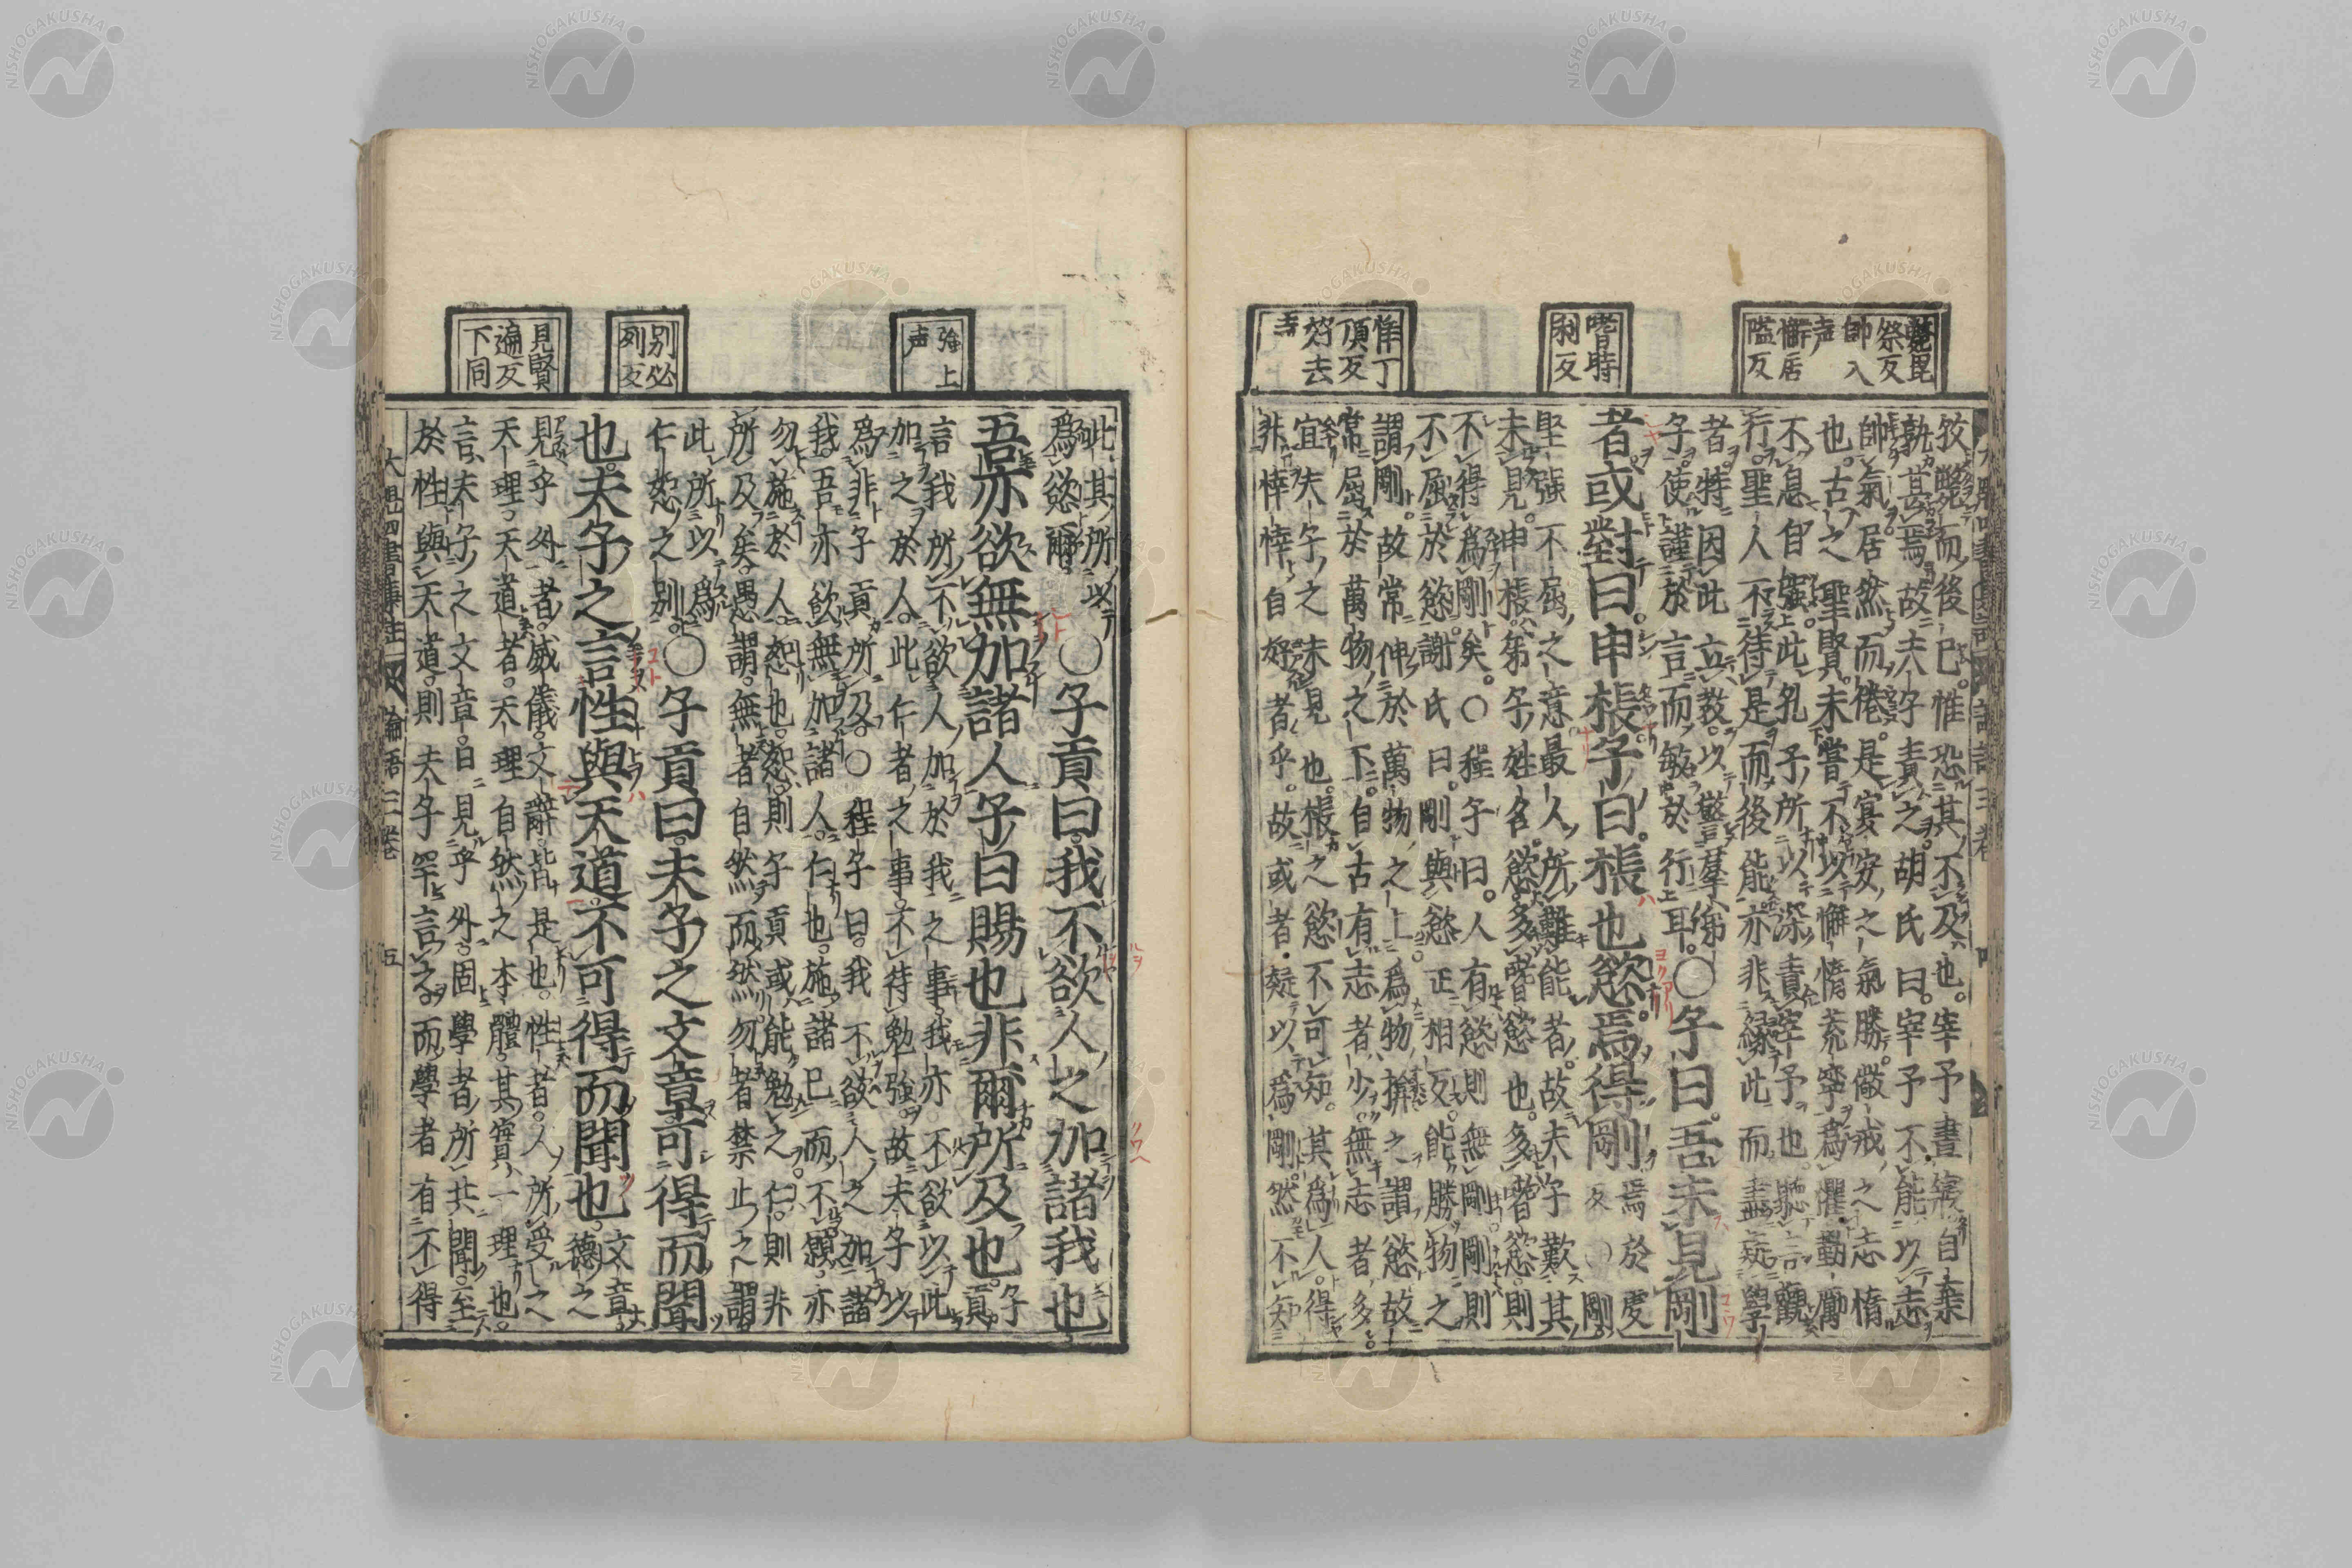 斃毘
祭反
帥入
声
懈居
隘反
嗜時
利反
悻丁
頂反
好去
声
孜斃而後已惟恐其不及也宰予晝寢自棄
孰甚焉故夫子責之胡氏曰宰予不能以志
帥氣居然而倦是宴安之氣勝儆戒之志惰
也古之聖賢未嘗不以懈惰荒寧爲懼勤勵
不息自強此孔子所以深責宰予也聽言觀
行聖人不待是而後能亦非緣此而盡疑學
者特因此立敎以警羣弟
子使謹於言而敏於行耳○子曰吾未見剛
者或對曰申棖子曰棖也慾焉得剛焉於虔
反○剛
堅強不屈之意最人所難能者故夫子歎其
未見申棖弟子姓名慾多嗜慾也多嗜慾則
不得爲剛矣○程子曰人有慾則無剛剛則
不屈於慾謝氏曰剛與慾正相反能勝物之
謂剛故常伸於萬物之上爲物揜之謂慾故
常屈於萬物之下自古有志者少無志者多
宜夫子之未見也棖之慾不可知其爲人得
非悻悻自好者乎故或者疑以爲剛然不知
強上
声
別必
列反
見賢
遍反
下同
此其所以
爲慾爾○子貢曰我不欲人之加諸我也
吾亦欲無加諸人子曰賜也非爾所及也子
貢
言我所不欲人加於我之事我亦不欲以此
加之於人此仁者之事不待勉強故夫子以
爲非子貢所及○程子曰我不欲人之加諸
我吾亦欲無加諸人仁也施諸已而不願亦
勿施於人恕也恕則子貢或能勉之仁則非
所及矣愚謂無者自然而然勿者禁止之謂
此所以爲
仁恕之別○子貢曰夫子之文章可得而聞
也夫子之言性與天道不可得而聞也文章
德之
見乎外者威儀文辭皆是也性者人所受之
天理天道者天理自然之本體其實一理也
言夫子之文章日見乎外固學者所共聞至
於性與天道則夫子罕言之而學者有不得
大魁四書集註 論語三卷 五
NISHOGAKUSHA